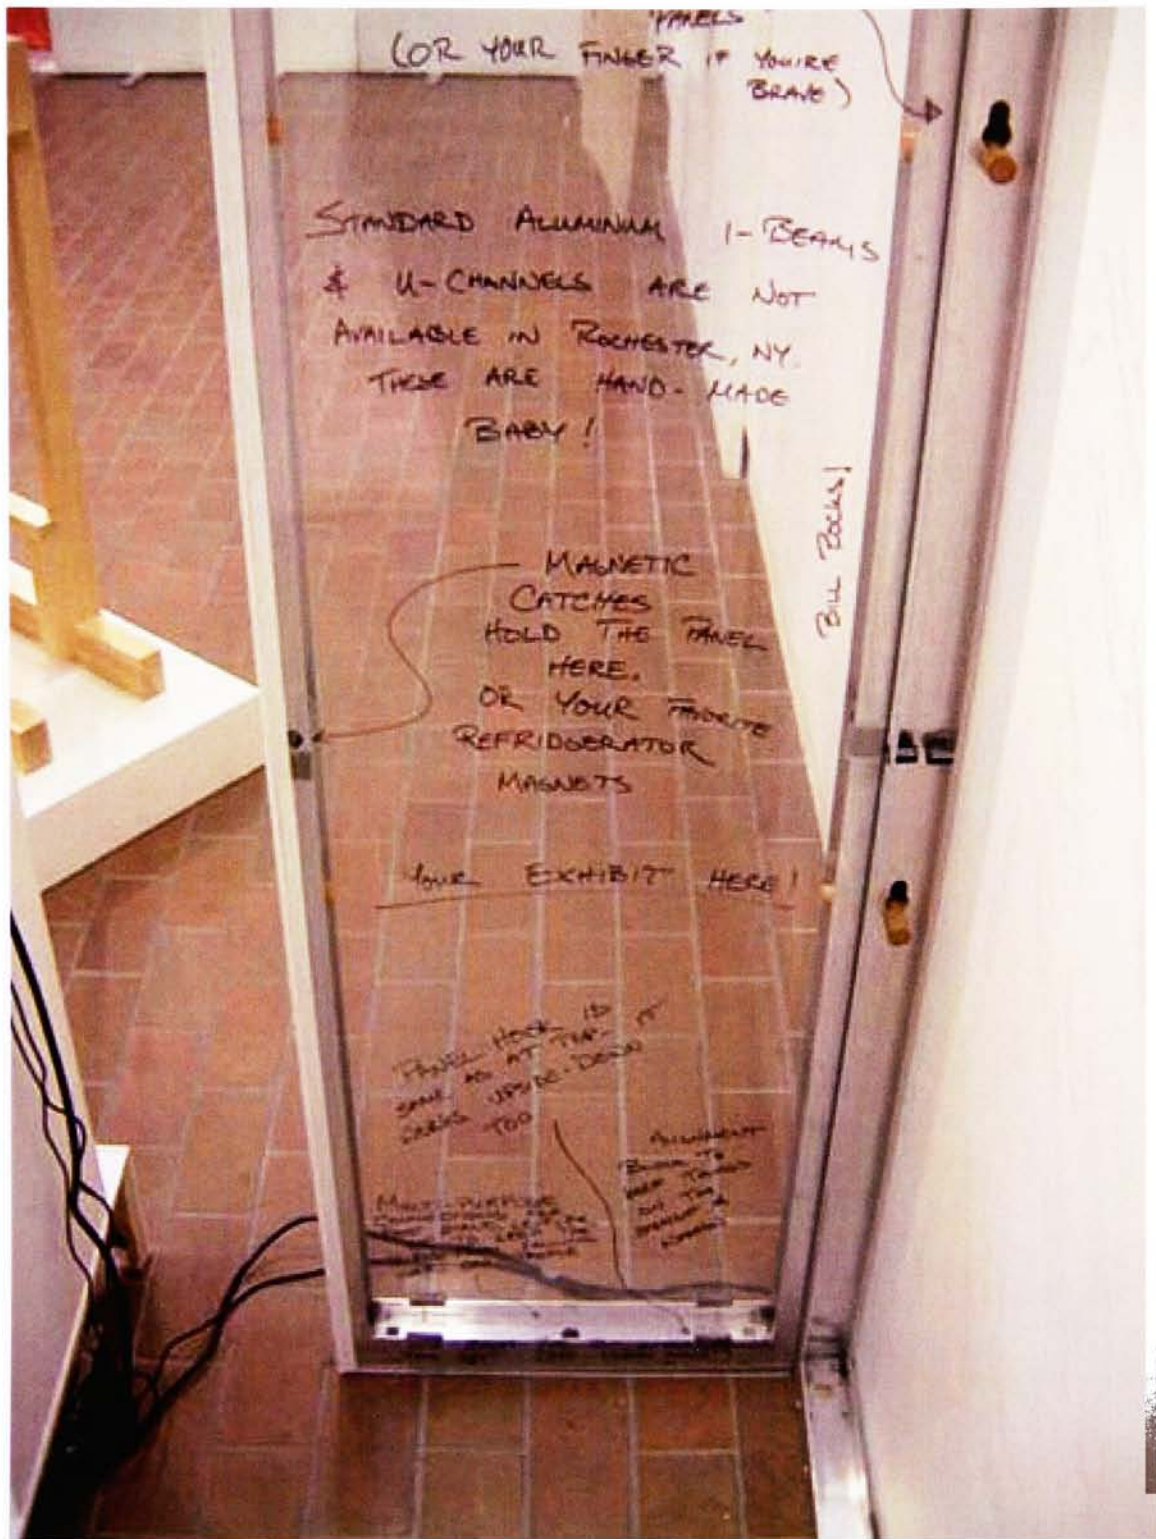 PANELS
(OR YOUR FINGER IF YOU'RE
BRAVE)
STANDARD ALUMINUM I-BEAMS
& U-CHANNELS ARE NOT
AVAILABLE IN ROCHESTER, NY.
THESE ARE HAND-MADE
BABY!
BILL ROCKS!
MAGNETIC
CATCHES
HOLD THE PANEL
HERE.
OR YOUR FAVORITE
REFRIDGERATOR
MAGNETS
YOUR EXHIBIT HERE!
PANEL HOOK IS
SAME AS AT TOP- IT
WORKS UPSIDE-DOWN
TOO
ALIGNMENT
BLOCK TO
KEEP
MULTI-PURPOSE